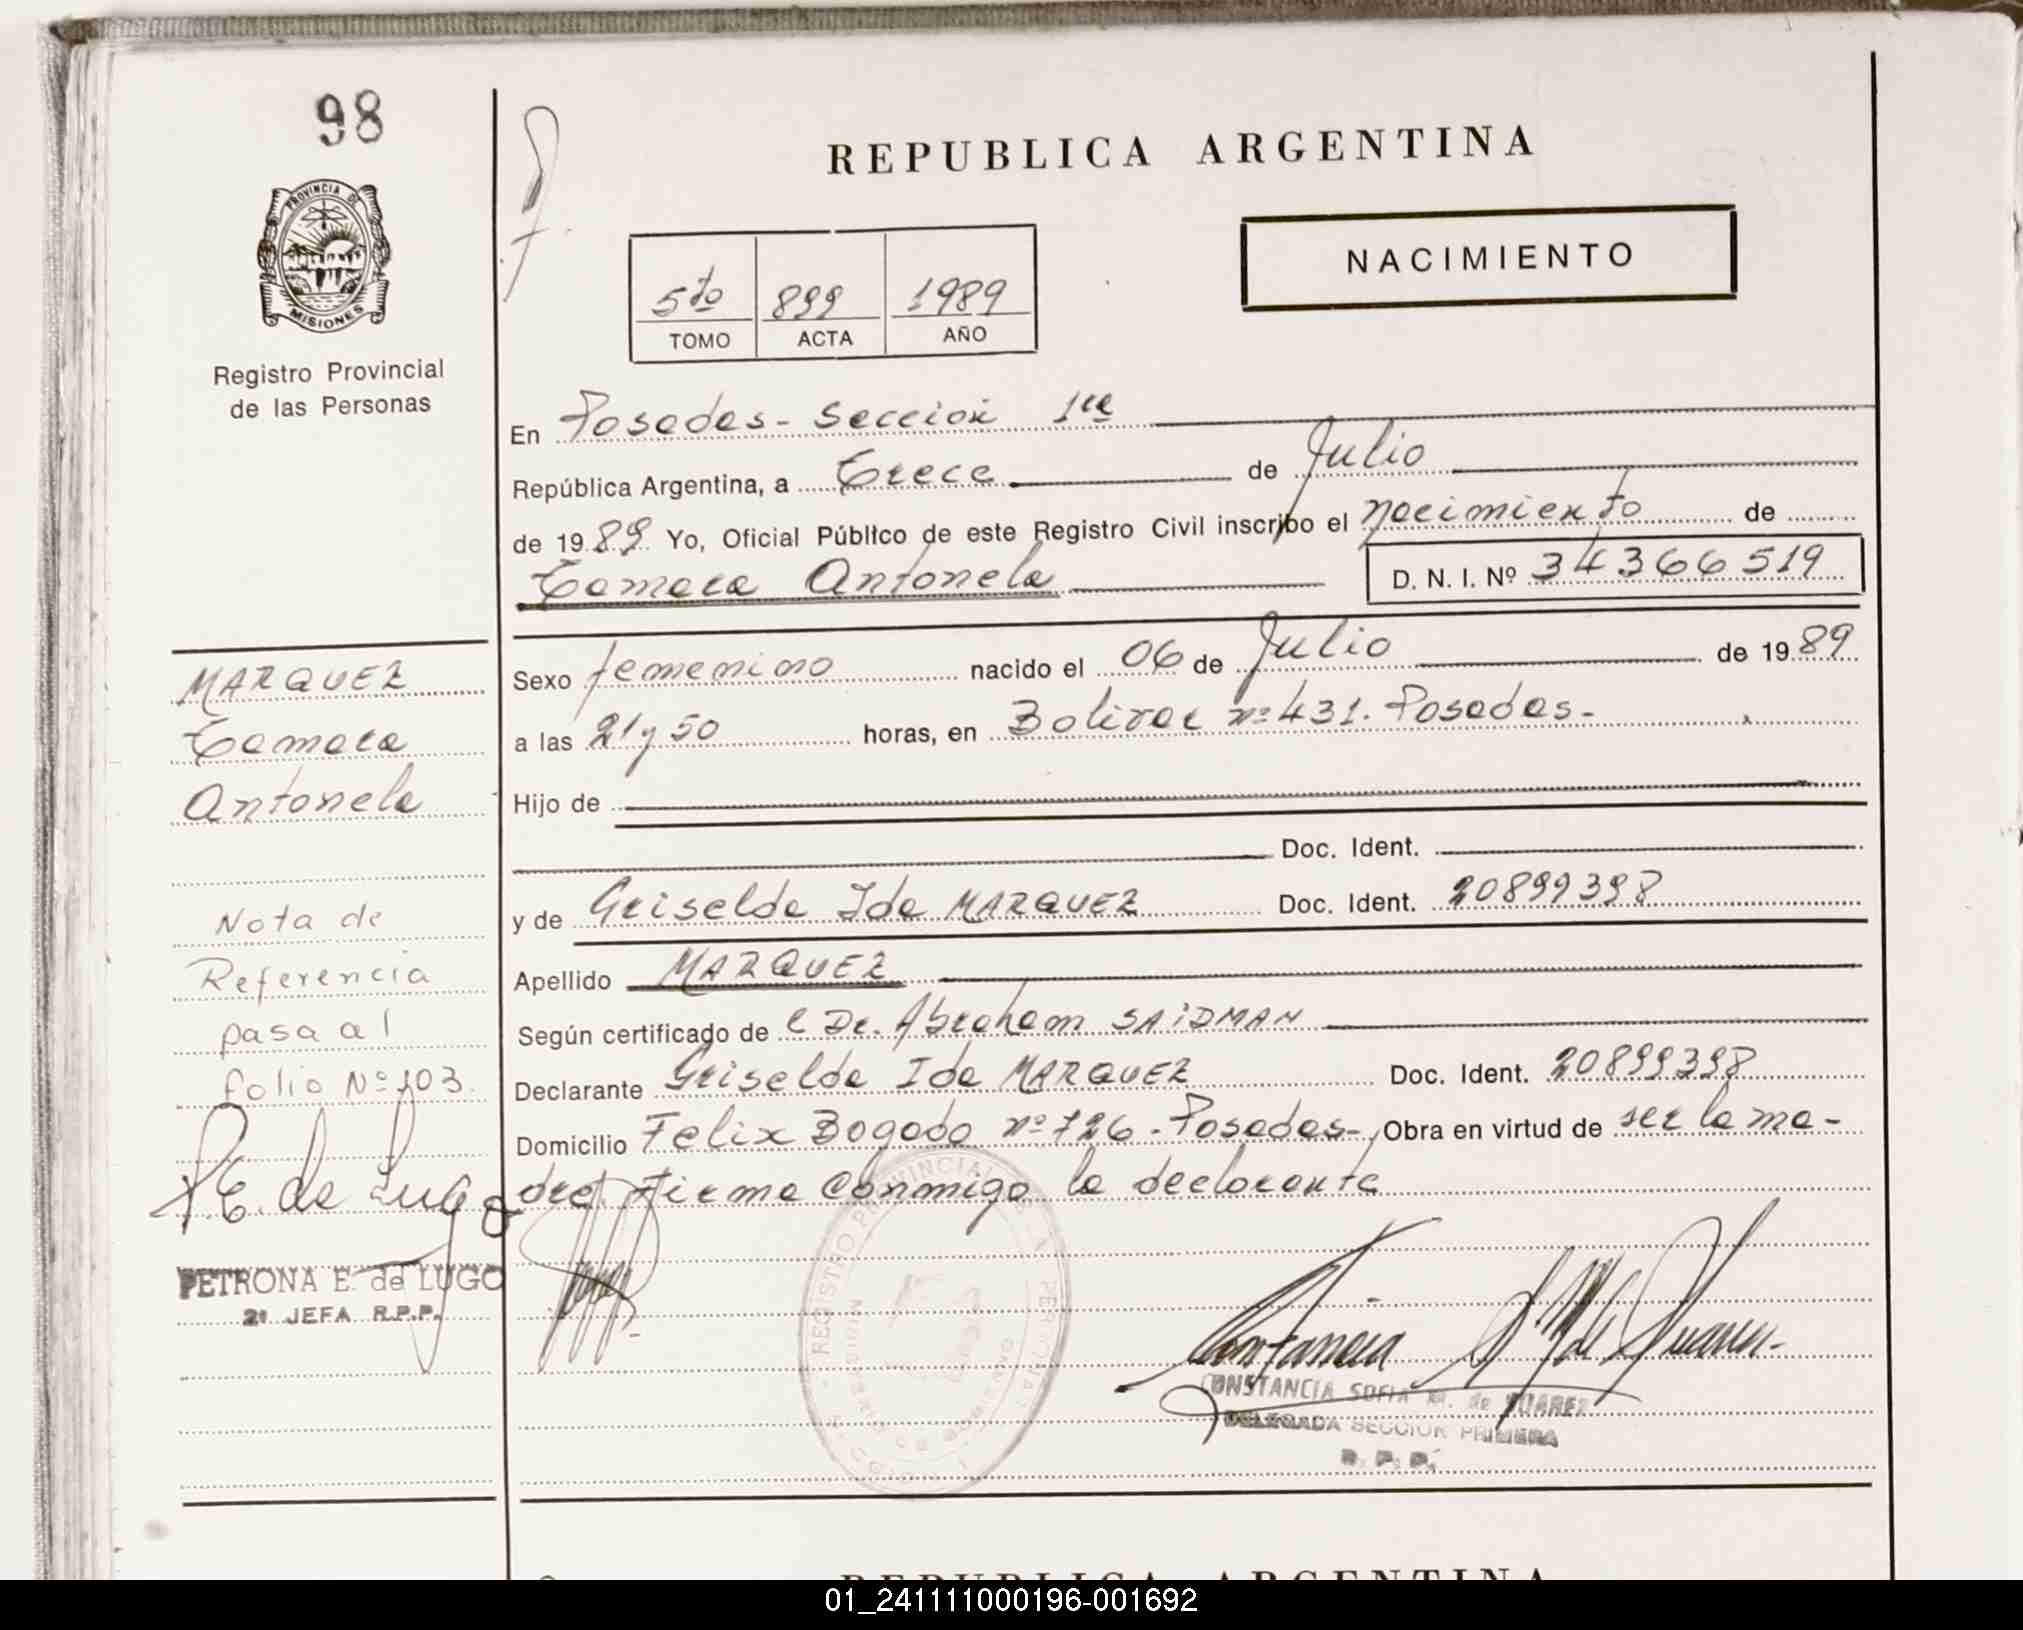 98
PROVINCIA DE
MISIONES
Registro Provincial
de las Personas
REPUBLICA ARGENTINA
NACIMIENTO
5to 899 1989
TOMO ACTA AÑO
En Posadas - Sección 1ra
República Argentina, a Trece de Julio
de 1989 Yo, Oficial Público de este Registro Civil inscribo el nacimiento de
Tamara Antonela D. N. I. Nº 34366519
Sexo femenino nacido el 06 de Julio de 1989
a las 21 y 50 horas, en Bolivar nº 431. Posadas-
Hijo de
Doc. Ident.
y de Griselda Ida MARQUEZ Doc. Ident. 20899398
Apellido MARQUEZ
Según certificado de l Dr. Abraham SAIDMAN
Declarante Griselda Ida MARQUEZ Doc. Ident. 20899398
Domicilio Felix Bogado nº 726 - Posadas-, Obra en virtud de ser la ma-
dre. Firma Conmigo la declarante
MARQUEZ
Tamara
Antonela
Nota de
Referencia
pasa al
folio Nº 103.
P.E. de Lugo
PETRONA E. de LUGO
2ª JEFA R.P.P.
Constancia S. M. de Suarez
CONSTANCIA SOFIA M. de SUAREZ
DELEGADA SECCION PRIMERA
R. P. P.
REPUBLICA ARGENTINA
01_241111000196-001692